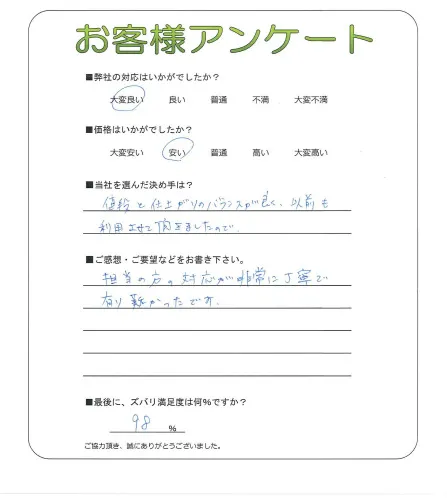 お客様アンケート
■弊社の対応はいかがでしたか？
大変良い 良い 普通 不満 大変不満
■価格はいかがでしたか？
大変安い 安い 普通 高い 大変高い
■当社を選んだ決め手は？
値段と仕上がりのバランスが良く、以前も
利用させて頂きましたので。
■ご感想・ご要望などをお書き下さい。
担当の方の対応が非常に丁寧で
有り難かったです。
■最後に、ズバリ満足度は何%ですか？
98 %
ご協力頂き、誠にありがとうございました。